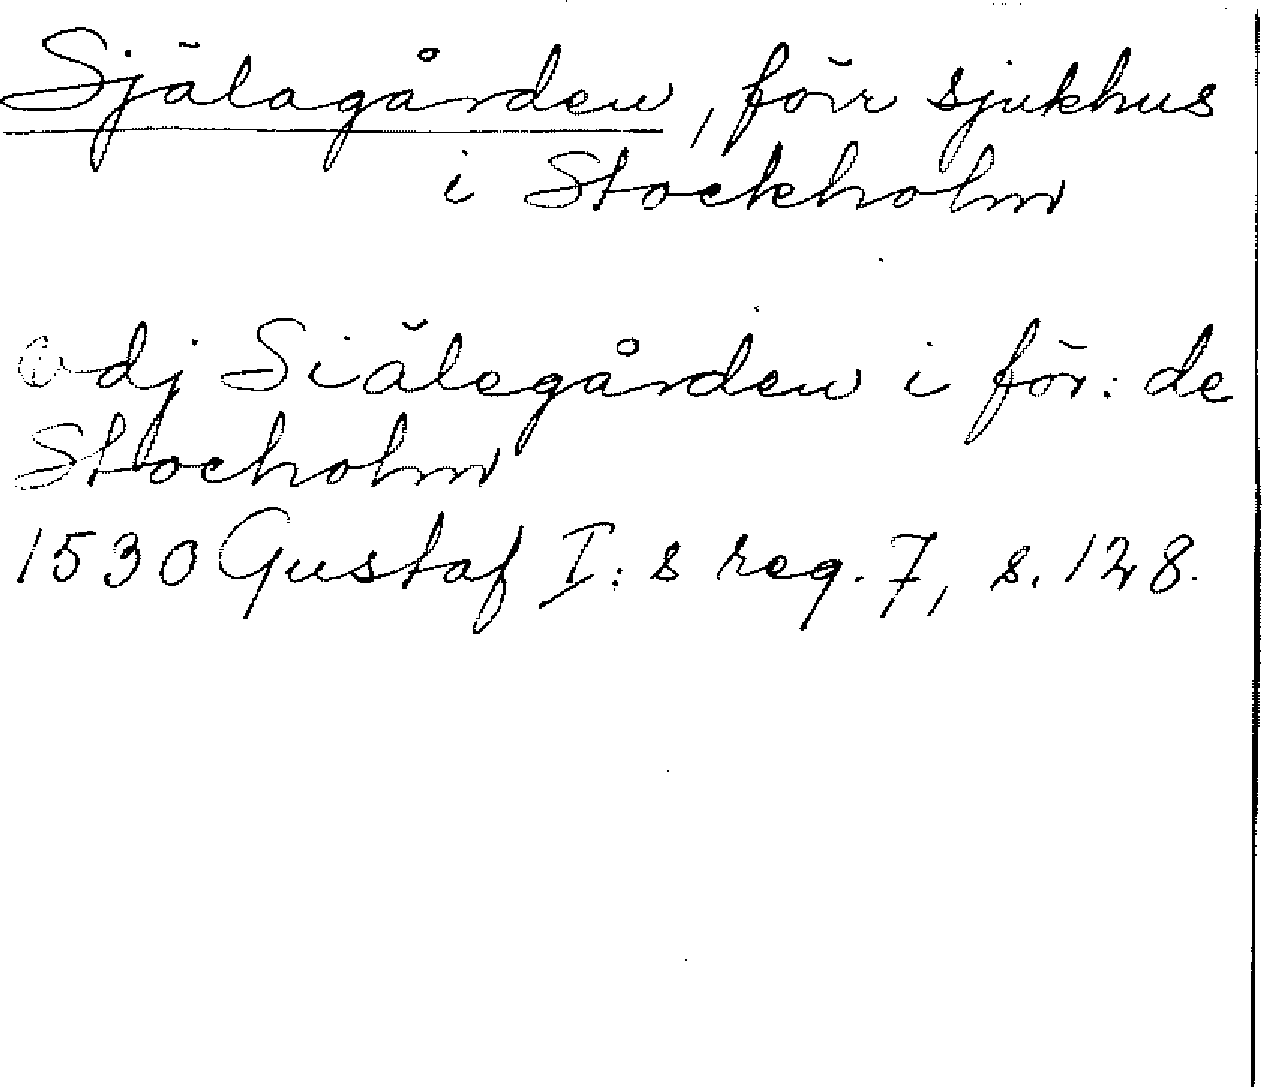 Själagården, förr sjukhus
i Stockholm
dj Siälegården i för: de
Stocholm
1530 Gustaf I: s reg. 7, s. 128.